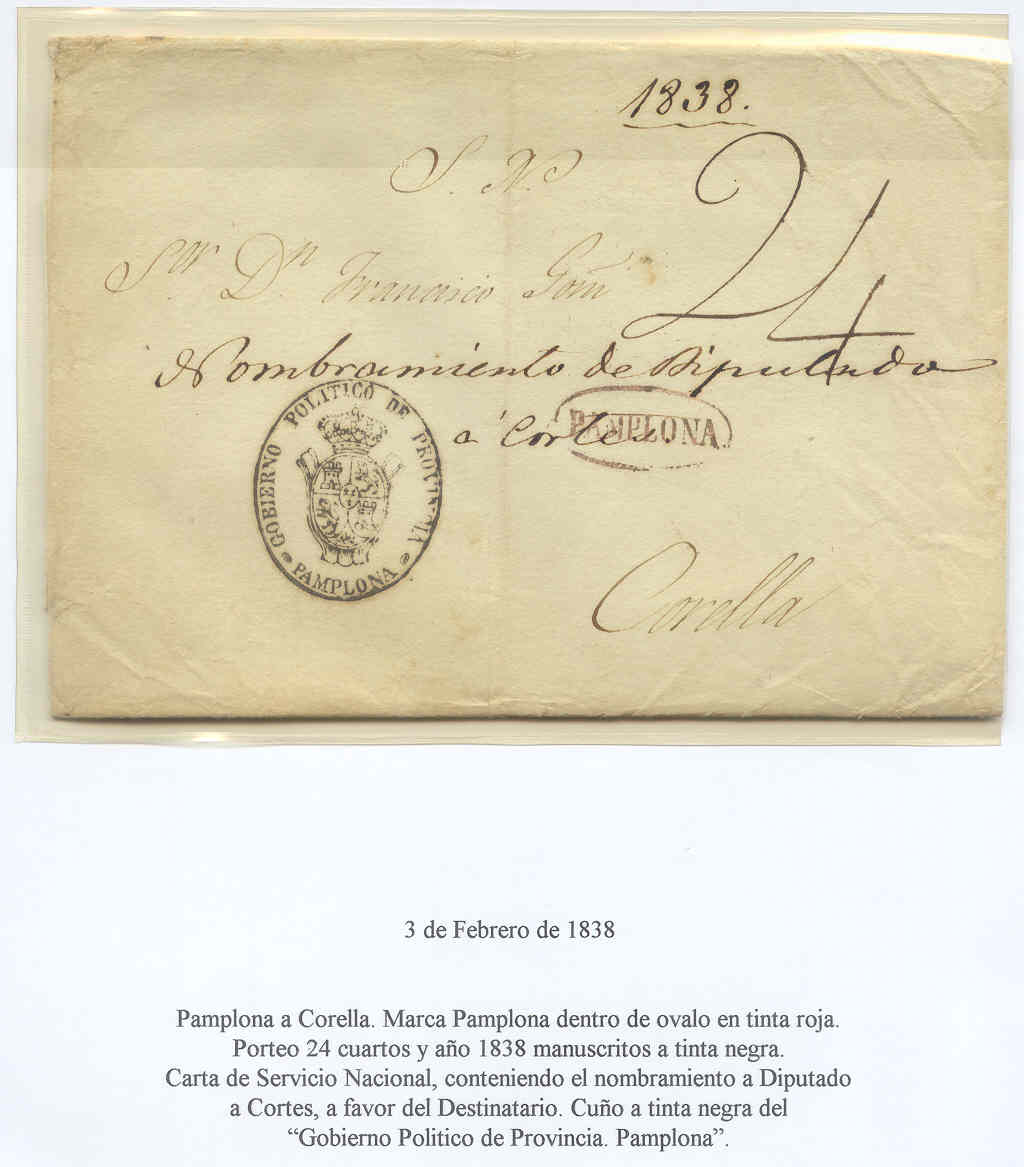 1838.
S. N.
24
Sor. Dn. Francisco Goñi
Nombramiento de Diputado
a Cortes.
PAMPLONA
GOBIERNO POLITICO DE PROVINCIA
PAMPLONA
Corella
3 de Febrero de 1838
Pamplona a Corella. Marca Pamplona dentro de ovalo en tinta roja.
Porteo 24 cuartos y año 1838 manuscritos a tinta negra.
Carta de Servicio Nacional, conteniendo el nombramiento a Diputado
a Cortes, a favor del Destinatario. Cuño a tinta negra del
“Gobierno Politico de Provincia. Pamplona”.